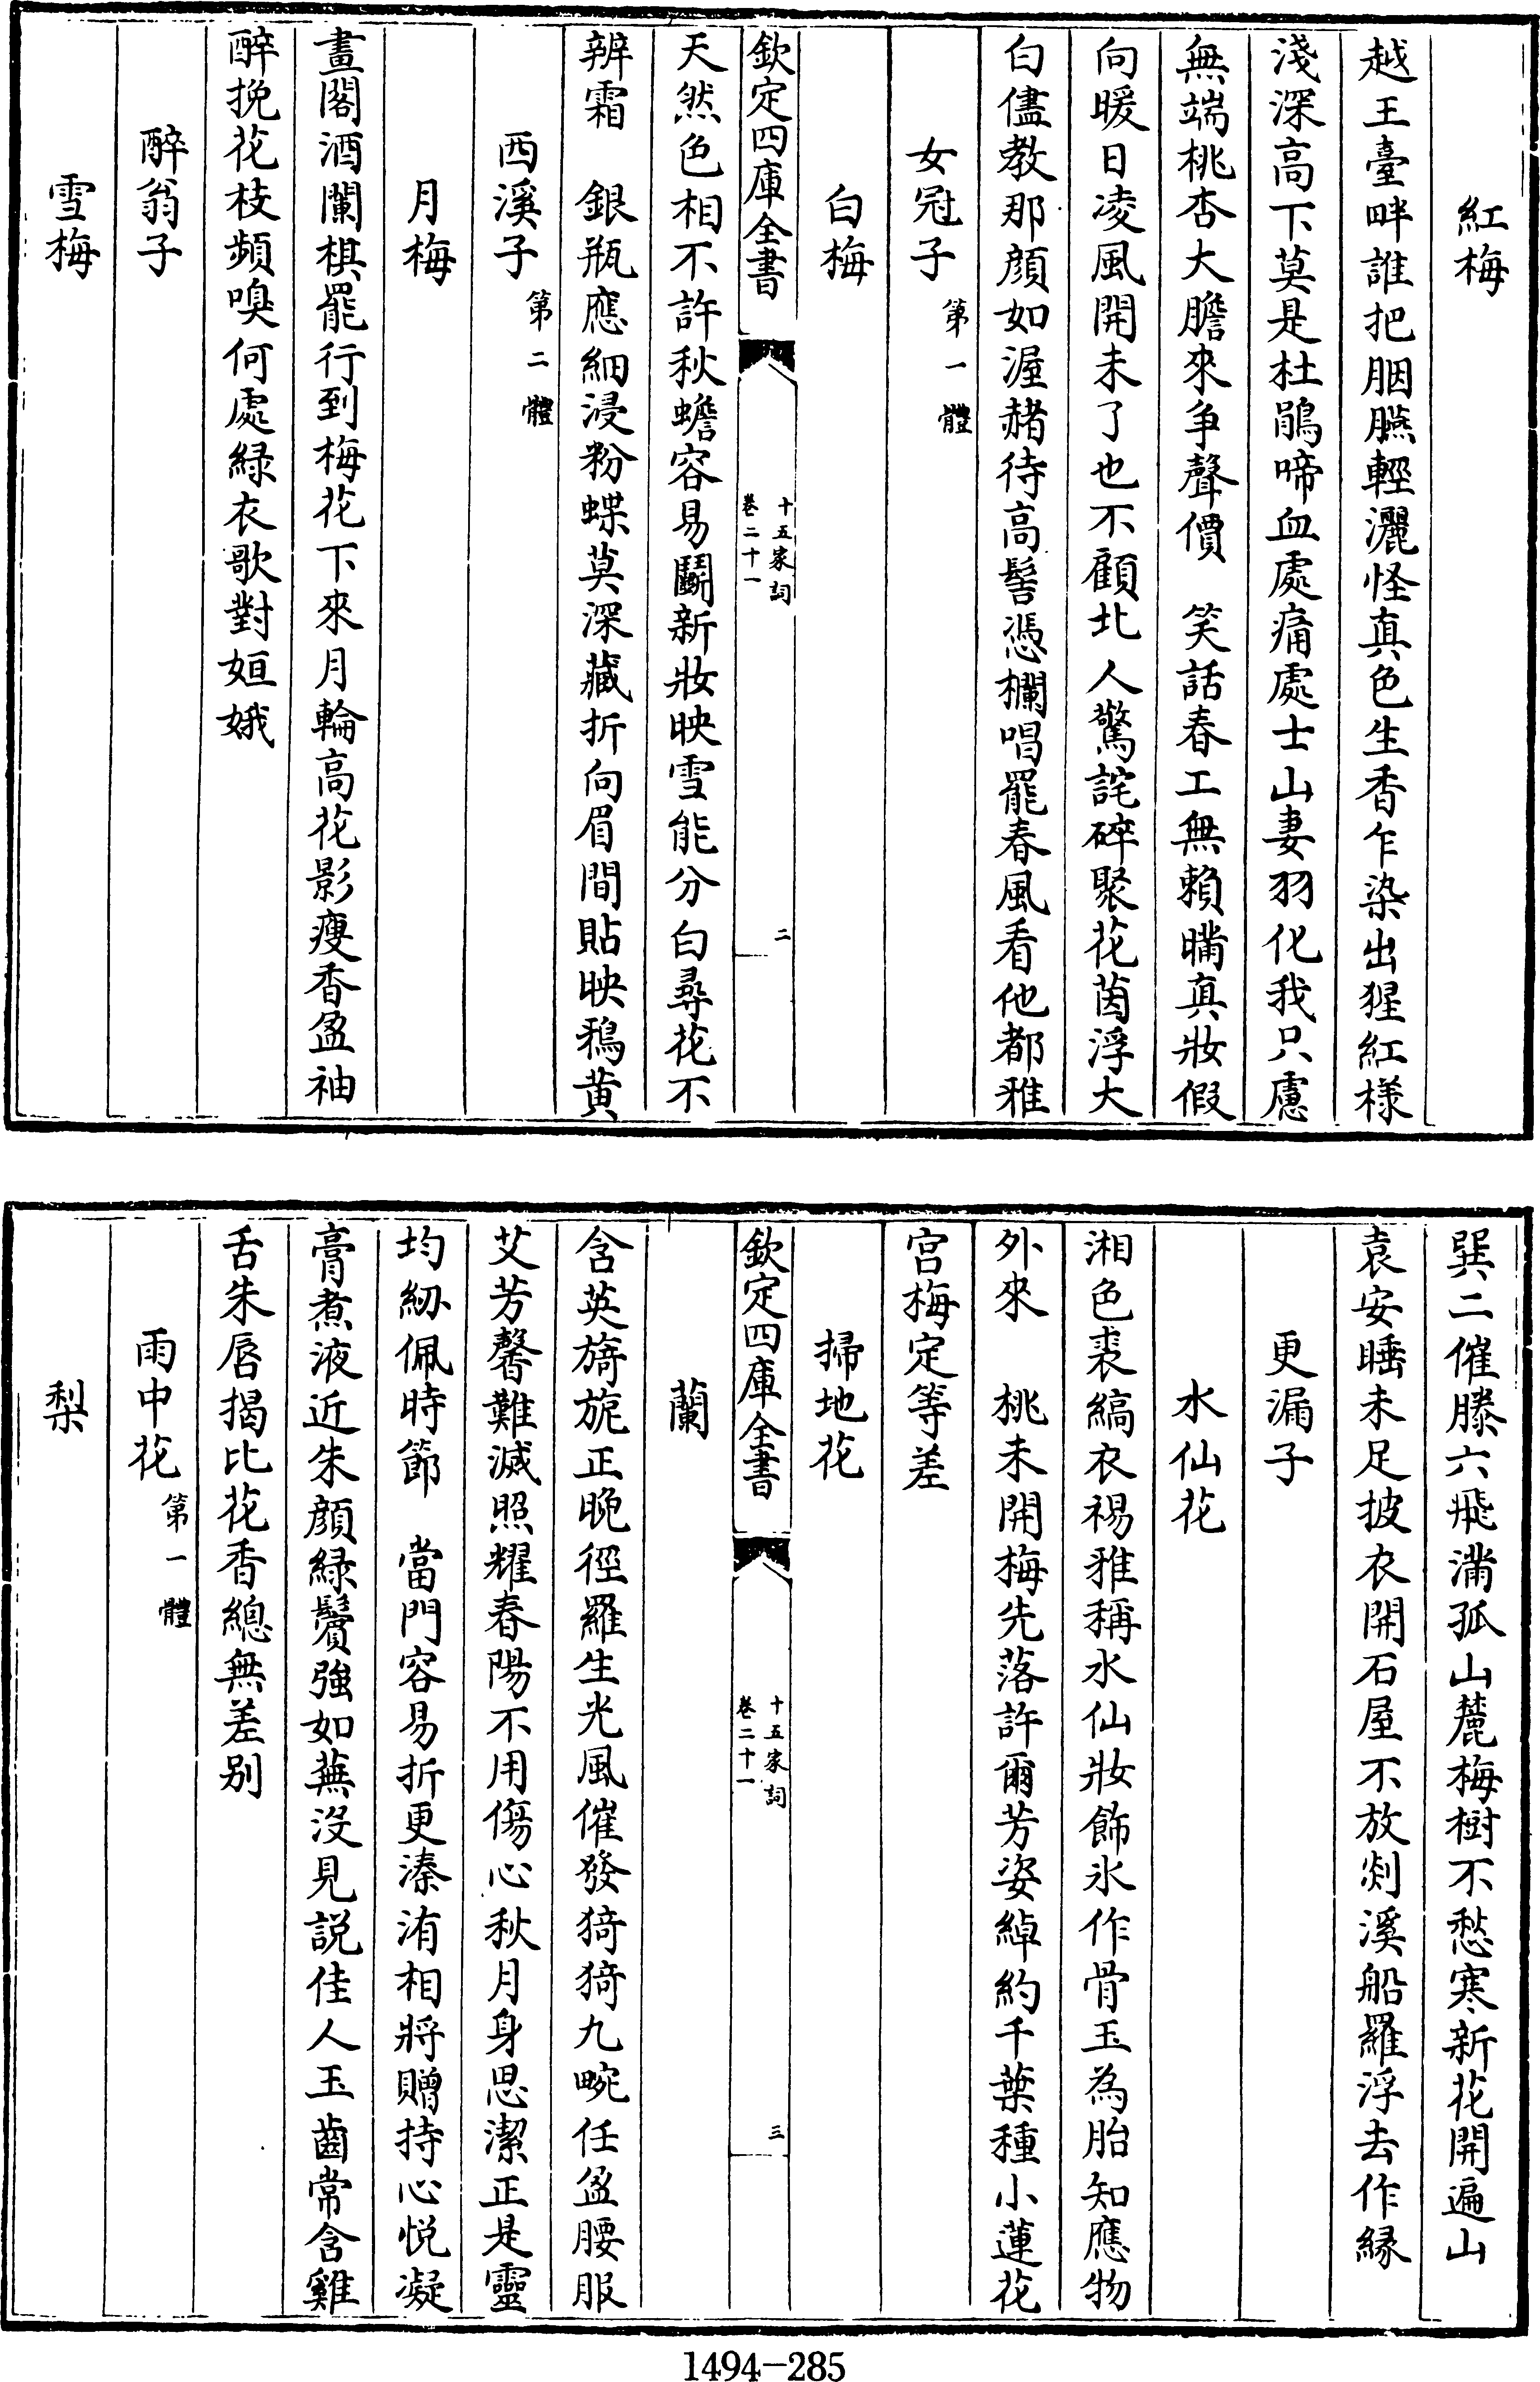 紅梅
越王臺畔誰把胭臙輕灑怪真色生香乍染出猩紅樣
淺深高下莫是杜鵑啼血處痛處士山妻羽化我只慮
無端桃杏大膽來爭聲價　笑話春工無賴瞞真妝假
向暖日凌風開未了也不顧北人驚詫碎聚花茵浮大
白儘教那顔如渥赭待高髻憑欄唱罷春風看他都雅
女冠子第一體
白梅
欽定四庫全書
十五家詞
卷二十一
二
天然色相不許秋蟾容易鬬新妝映雪能分白尋花不
辨霜　銀瓶應細浸粉蝶莫深藏折向眉間貼映鵶黄
西溪子第二體
月梅
畫閣酒闌棋罷行到梅花下來月輪高花影瘦香盈袖
醉挽花枝頻嗅何處緑衣歌對姮娥
醉翁子
雪梅
巽二催滕六飛滿孤山麓梅樹不愁寒新花開遍山
袁安睡未足披衣開石屋不放剡溪船羅浮去作縁
更漏子
水仙花
湘色裘縞衣裼雅稱水仙妝飾氷作骨玉為胎知應物
外來　桃未開梅先落許爾芳姿綽約千葉種小蓮花
宫梅定等差
掃地花
欽定四庫全書
十五家詞
卷二十一
三
蘭
含英旖旎正晚徑羅生光風催發猗猗九畹任盈腰服
艾芳馨難滅照耀春陽不用傷心秋月身思潔正是靈
均紉佩時節　當門容易折更溱洧相將贈持心悦凝
膏煮液近朱顔緑鬢強如蕪沒見説佳人玉齒常含雞
舌朱唇揭比花香總無差别
雨中花第一體
梨
1494-285